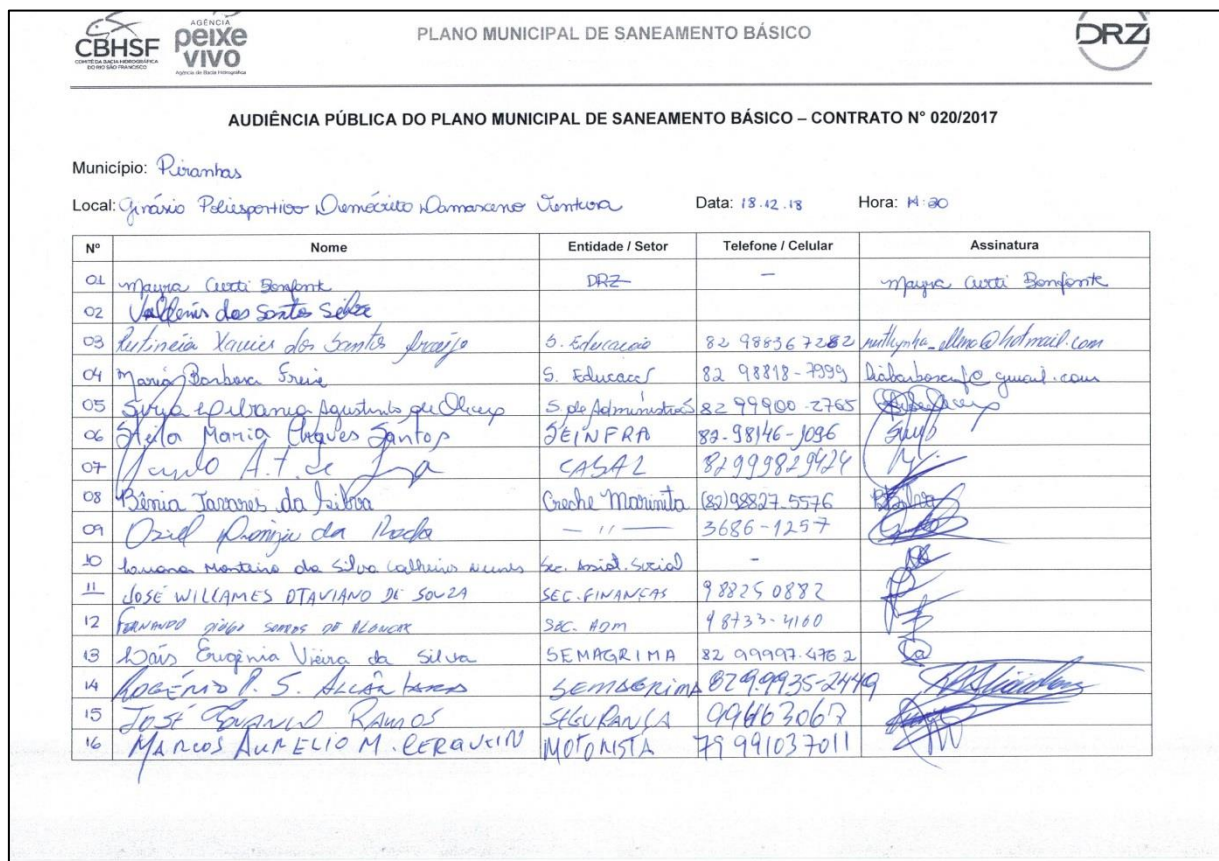 CBHSF
COMITÊ DA BACIA HIDROGRÁFICA
DO RIO SÃO FRANCISCO
AGÊNCIA
peixe
vivo
Agência de Bacia Hidrográfica
PLANO MUNICIPAL DE SANEAMENTO BÁSICO
DRZ
AUDIÊNCIA PÚBLICA DO PLANO MUNICIPAL DE SANEAMENTO BÁSICO – CONTRATO N° 020/2017
Município: Piranhas
Local: Ginásio Poliesportivo Demócrito Damasceno Ventura Data: 18.12.18 Hora: 14:30
Nº Nome Entidade / Setor Telefone / Celular Assinatura
01 Mayra Curti Bonfante DRZ — Mayra Curti Bonfante
02 dos Santos Silva
03 Xavier dos Santos Araújo S. Educação 82 988367282
04 Maria Barbosa Freire S. Educação 82 98818-7999
05 Agustinho de S. de Administração 82 99900-2765
06 Stela Maria Chagves Santos SEINFRA 82-98146-1096
07 A. T. de CASAL 82999829424
08 Bênia Tavares da Silva Creche Marinita (82)98827.5576
09 da Rocha — 11 — 3686-1257
10 Luana Monteiro da Silva Calheiros Nunes Sec. Assist. Social -
11 JOSÉ WILLAMES OTAVIANO DE SOUZA SEC. FINANÇAS 98825 0882
12 FERNANDO DIEGO DE ALENCAR SEC. ADM 98733-4160
13 Laís Eugênia Vieira da Silva SEMAGRIMA 82 99997.4762
14 ROGÉRIO P. S. ALCÂNTARA SEMAGRIMA 829.9935-2449
15 JOSÉ RAMOS SEGURANÇA 994163067
16 MARCOS AURELIO M. CERQUEIR MOTORISTA 79 991037011